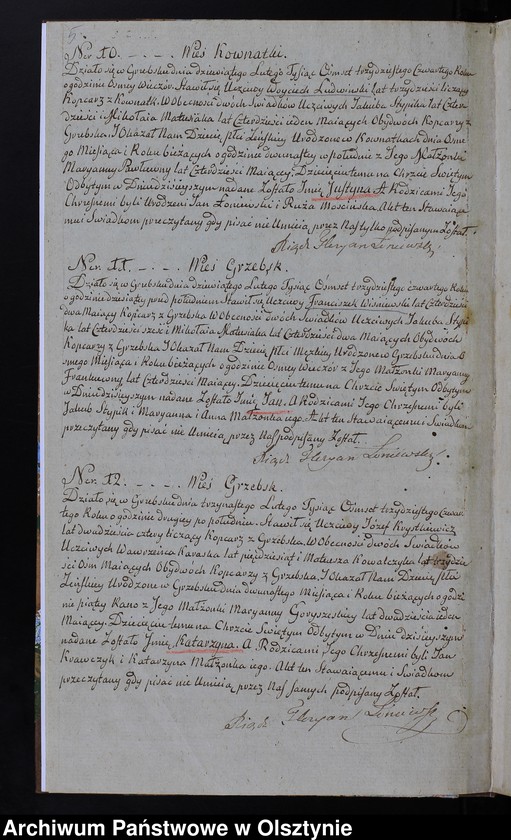 Ner. 10. - . - . Wieś Kownatki.
Działo się w Grzebsku dnia dziewiątego Lutego Tysiąc Ośmset trzydziestego Czwartego Roku
o godzinie Osmey Wieczor. Stawił się Uczciwy Woyciech Ludwinski lat trzydzieści liczący
Kopcarz z Kownatk. W Obecności dwóch Swiadków Uczciwych Jakuba Stypika lat Czter-
dzieści i Mikołaia Matusiaka lat Czterdzieści ieden Maiących Obydwóch Kopcarzy z
Grzebska. I Okazał Nam Dziecie płci Zeńskiey Urodzone w Kownatkach dnia Osme-
go Miesiąca i Roku bieżących o godzinie dwunastey w południe z Jego Małżonki
Maryanny Pawłowny lat Czterdzieści Maiącey. Dziecięciu temu na Chrzcie Swiętym
Odbytym w Dniu dzisieyszym nadane Zostało Imie Justyna. A Rodzicami Jego
Chrzesnemi byli Urodzeni Jan Łoniewski i Ruża Moscinska. Akt ten Stawaiące-
mu i Swiadkom przeczytany gdy pisać nie Umieią przez Nas tylko podpisanym Został.
Xiądz Floryan Liniewski
Ner. 11. - . - . Wieś Grzebsk.
Działo się w Grzebsku dnia dziewiątego Lutego Tysiąc Ośmset trzydziestego czwartego Roku
o godzinie dziesiątey przed południem Stawił się Uczciwy Franciszek Wisniewski lat Czterdzieści
dwa Maiący Kopcarz z Grzebska W Obecności dwóch Swiadków Uczciwych Jakuba Stypi-
ka lat Czterdzieści sześć i Mikołaia Matusiaka lat Czterdzieści dwa Maiących Obydwóch
Kopcarzy z Grzebska. I Okazał Nam Dziecie płci Męzkiey Urodzone w Grzebsku dnia O-
smego Miesiąca i Roku bieżących o godzinie Osmey Wieczór z Jego Małżonki Maryanny
Frankowny lat Czterdzieści Maiącey. Dziecięciu temu na Chrzcie Swiętym Odbytym
w Dniu dzisieyszym nadane Zostało Imie Jan. A Rodzicami Jego Chrzesnemi byli
Jakub Stypik i Maryanna i Anna Małżonka iego. Akt ten Stawaiącemu i Swiadkom
przeczytany gdy pisać nie Umieią przez Nas podpisany Został.
Xiądz Floryan Liniewski
Ner. 12. - . - . Wieś Grzebsk.
Działo się w Grzebsku dnia trzynastego Lutego Tysiąc Ośmset trzydziestego Czwar-
tego Roku o godzinie drugiey po południu. Stawił się Uczciwy Józef Krystkiewicz
lat dwadzieścia cztery liczący Kopcarz z Grzebska. W Obecności dwóch Swiadków
Uczciwych Wawrzeńca Karaska lat pięćdziesiąt i Mateusza Kowalczyka lat trzydzie-
ści Ośm Maiących Obydwóch Kopcarzy z Grzebska. I Okazał Nam Dziecie płci
Zeńskiey Urodzone w Grzebsku dnia dwunastego Miesiąca i Roku bieżących o godzi-
nie piątey Rano z Jego Małżonki Maryanny lat dwadzieścia ieden
Maiącey. Dziecięciu temu na Chrzcie Swiętym Odbytym w Dniu dzisieyszym
nadane Zostało Imie Katarzyna. A Rodzicami Jego Chrzesnemi byli Jan
Krawczyk i Katarzyna Małżonka iego. Akt ten Stawaiącemu i Swiadkom
przeczytany gdy pisać nie Umieią przez Nas Samych podpisany Został.
Xiądz Floryan Liniewski
Archiwum Państwowe w Olsztynie